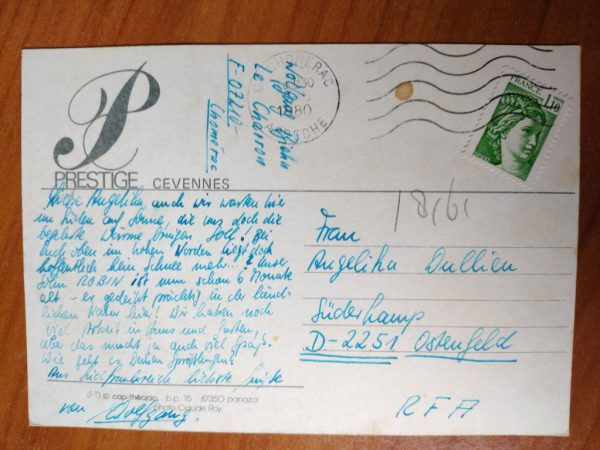 PRESTIGE CEVENNES
CHOMERAC
1980
ARDECHE
FRANCE
1,10
Wolfgang
Le Charron
F-07210-
Chomérac
Liebe Angelika, auch wir warten hier
im Süden auf Sonne, die uns doch die
begehrte Wärme bringen soll! Bei
Euch oben im hohen Norden liegt doch
hoffentlich kein Schnee mehr..? Unser
Sohn ROBIN ist nun schon 6 Monate
alt - er gedeiht prächtig in der länd-
lichen Natur hier! Wir haben noch
viel Arbeit in Haus und Garten,
aber das macht ja auch viel Spaß.
Wie geht es Deinen Sprößlingen?
Aus Südfrankreich liebste Grüße
von Wolfgang.
(F-T) © cap-théojac, b.p. 15 87350 panazol
Photo Claude Roy
Frau
Angelika Dullien
Süderhamp
D-2251 Ostenfeld
RFA